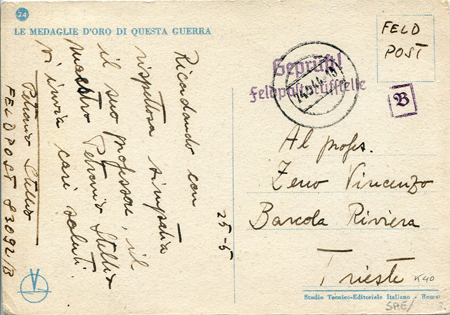 24
LE MEDAGLIE D'ORO DI QUESTA GUERRA
Ricordando con
rispettosa simpatia
il suo professore, il
maestro Petronio Stellio
vi invia cari saluti.
Petronio Stellio
FELDPOST 83092/B
25-5
FELD
POST
Geprüft!
Feldpostprüfstelle
B
Al profes.
Zeno Vincenzo
Barcola Riviera
Trieste
K40
Studio Tecnico-Editoriale Italiano - Roma
SAE/